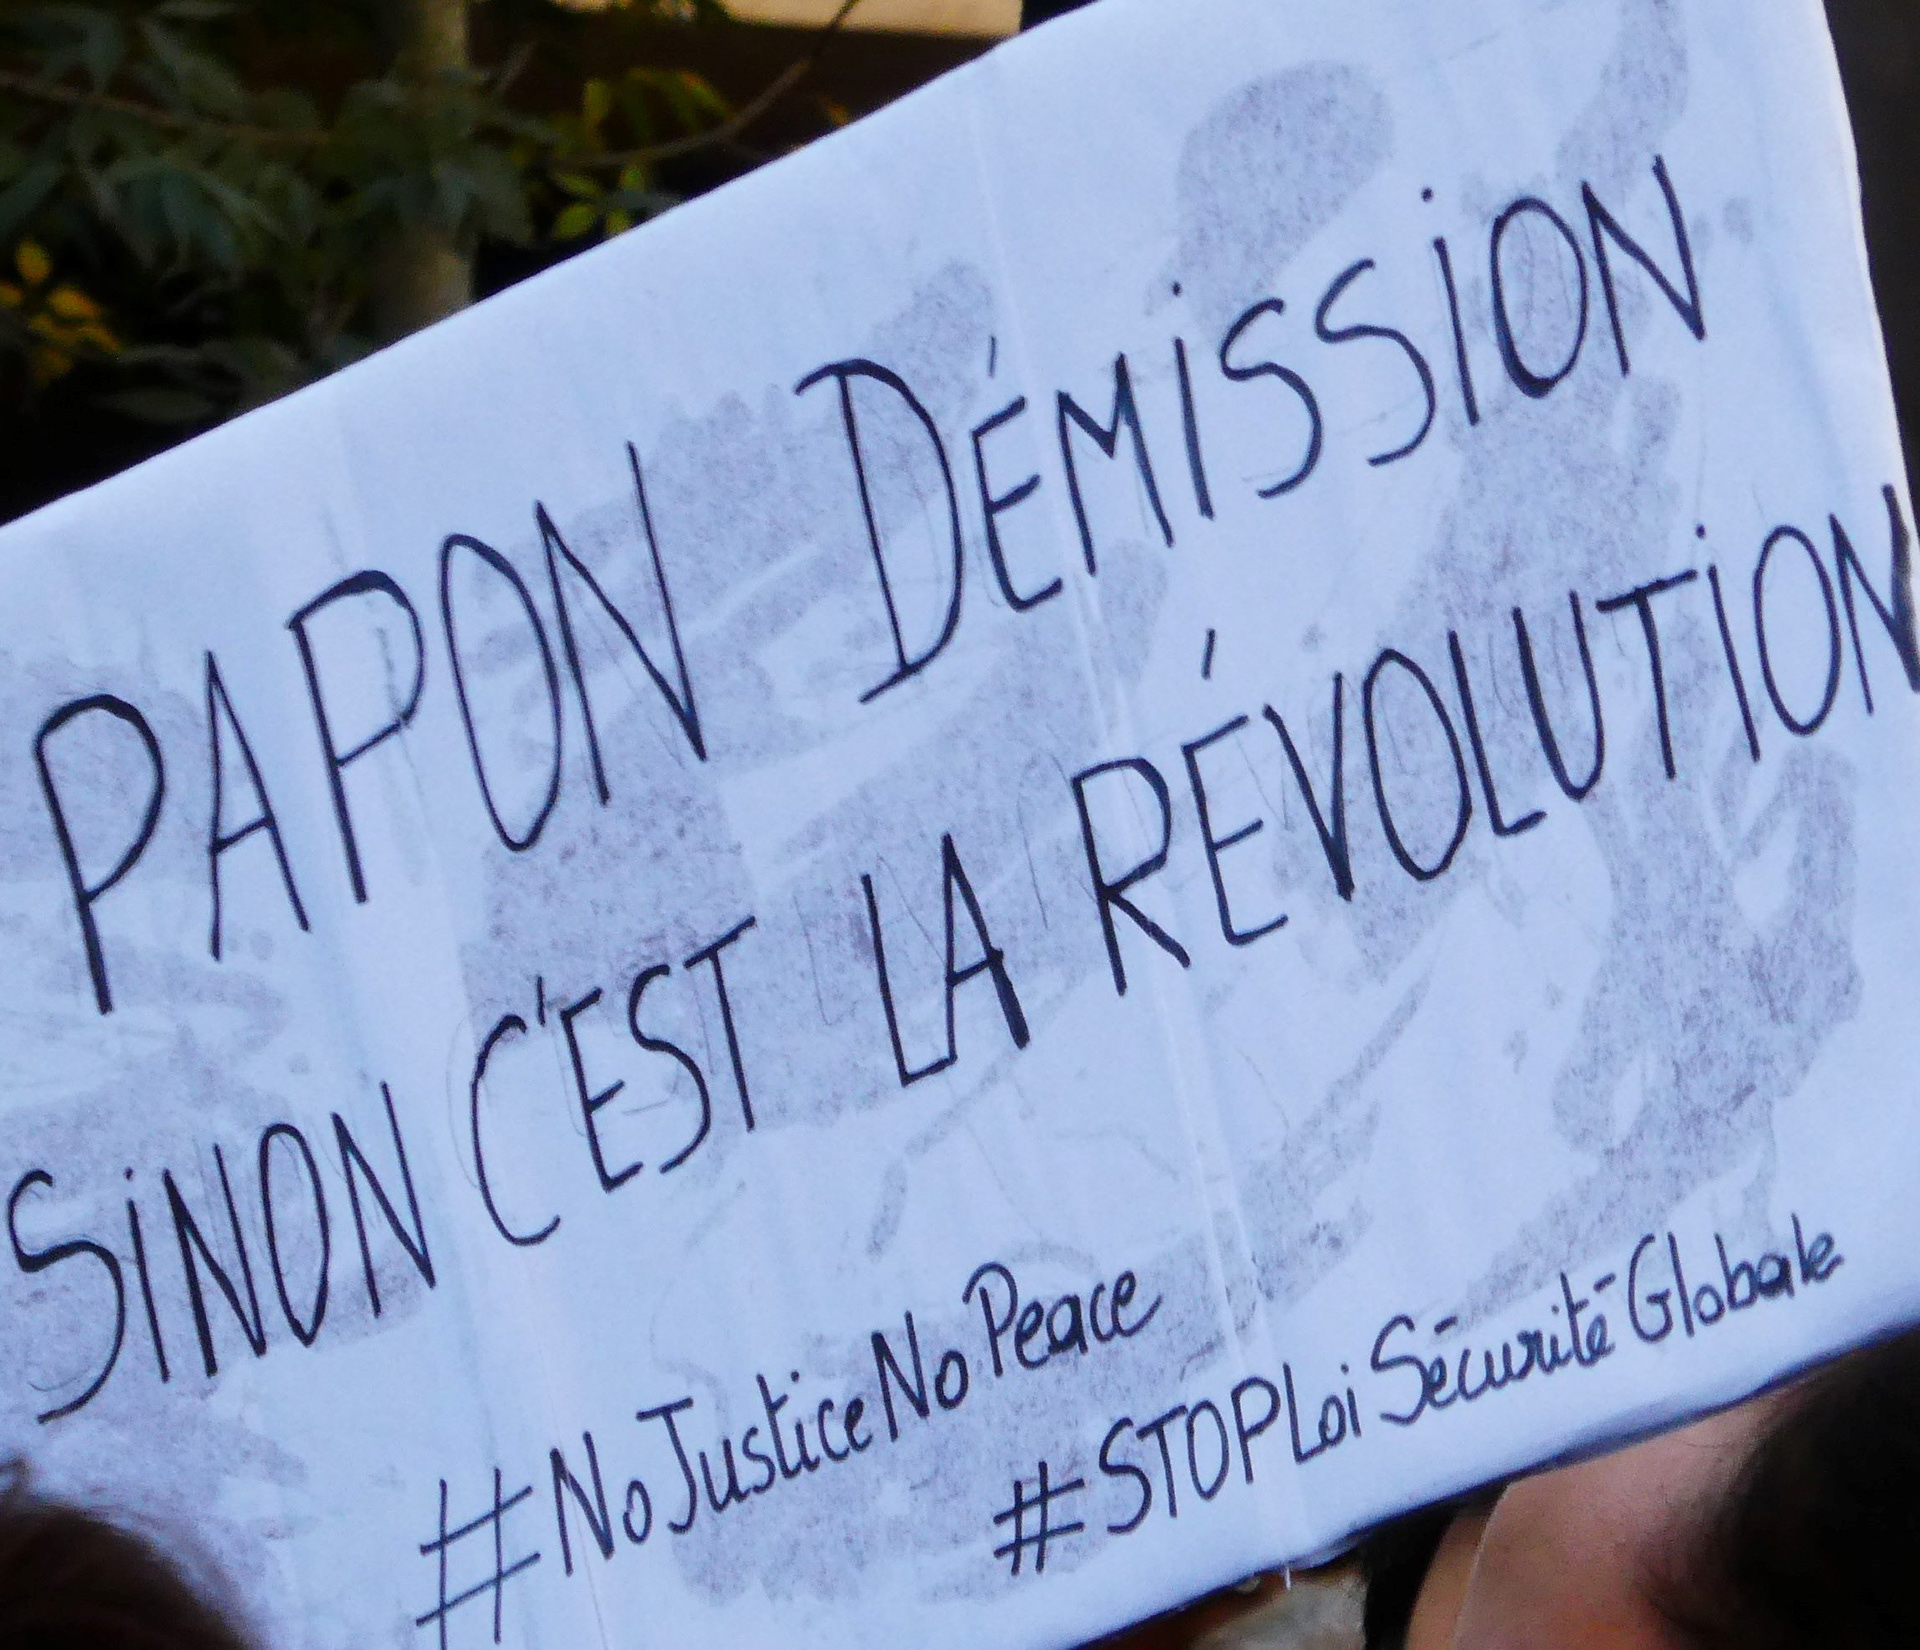 PAPON DÉMISSION
SINON C'EST LA RÉVOLUTION
#NoJusticeNoPeace
#STOPLoiSécuritéGlobale